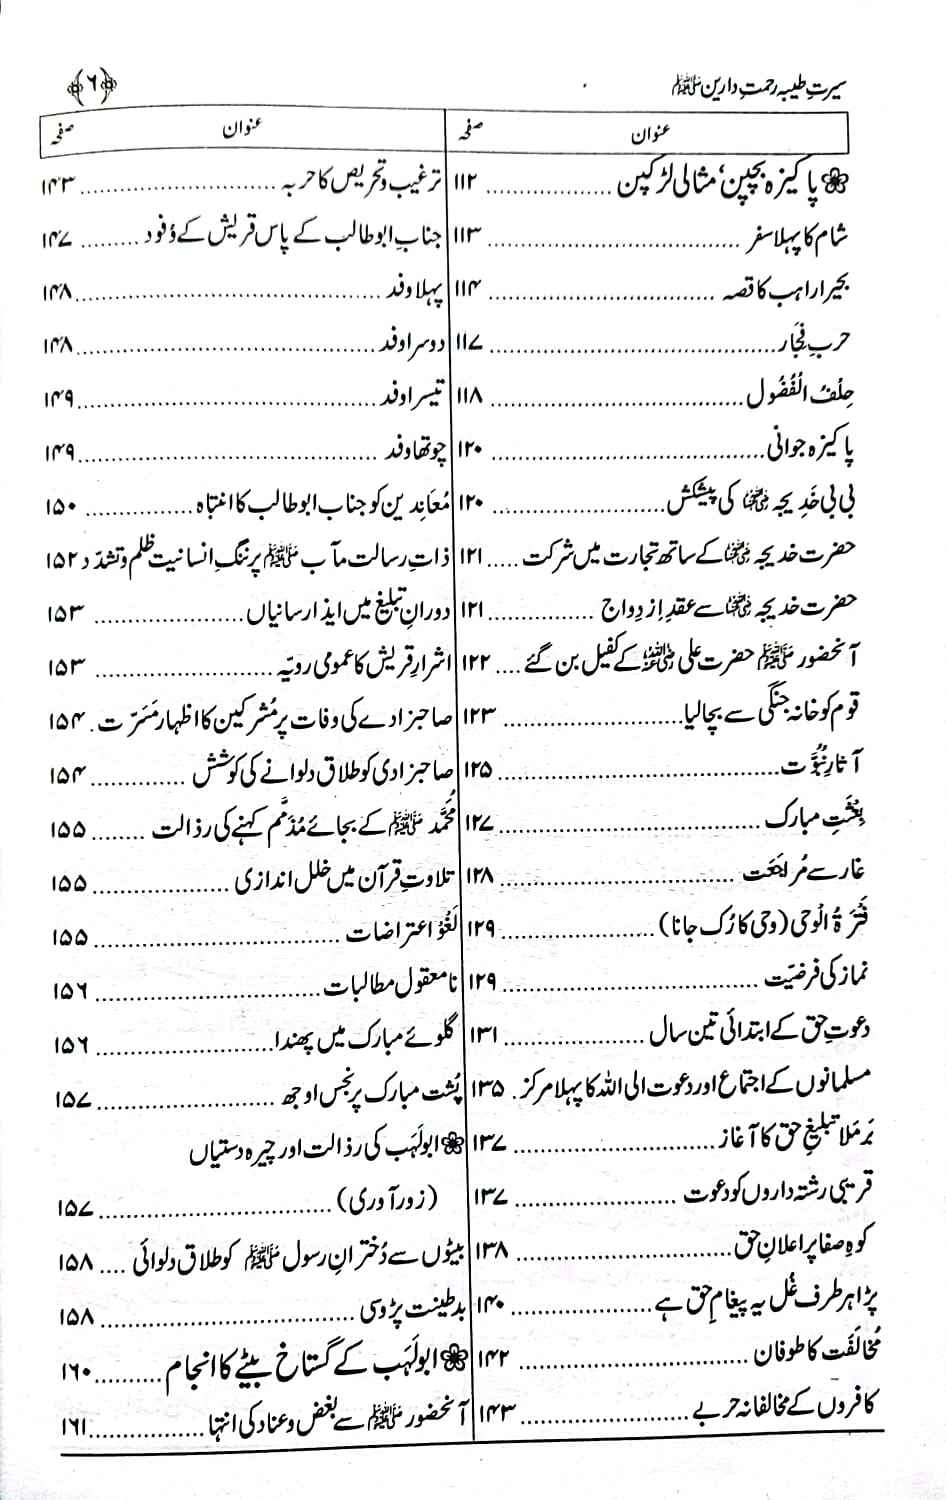 سیرتِ طیبہ رحمتِ دارین ﷺ ﴿۶﴾
عنوان صفحہ
❁ پاکیزہ بچپن، مثالی لڑکپن .............. ۱۱۲
شام کا پہلا سفر .............. ۱۱۳
بحیرا راہب کا قصہ .............. ۱۱۴
حربِ فِجَار .............. ۱۱۷
حِلْفُ الْفُضُول .............. ۱۱۸
پاکیزہ جوانی .............. ۱۲۰
بی بی خَدِیجہ ؓ کی پیشکش .............. ۱۲۰
حضرت خدیجہ ؓ کے ساتھ تجارت میں شرکت ..... ۱۲۱
حضرت خدیجہ ؓ سے عقدِ اِزدِواج .............. ۱۲۱
آنحضور ﷺ حضرت علی ؓ کے کفیل بن گئے .... ۱۲۲
قوم کو خانہ جنگی سے بچالیا .............. ۱۲۳
آثارِ نبُوَّت .............. ۱۲۵
بِعْثَتِ مبارک .............. ۱۲۷
غار سے مُراجَعَت .............. ۱۲۸
فَتْرَۃُ الْوحی (وحی کا رُک جانا) .............. ۱۲۹
نماز کی فرضیّت .............. ۱۲۹
دعوتِ حق کے ابتدائی تین سال .............. ۱۳۱
مسلمانوں کے اجتماع اور دعوت الی اللہ کا پہلا مرکز . ۱۳۵
بَرمَلا تبلیغِ حق کا آغاز .............. ۱۳۷
قریبی رشتہ داروں کو دعوت .............. ۱۳۷
کوہِ صفا پر اعلانِ حق .............. ۱۳۸
پڑا ہر طرف غُل یہ پیغامِ حق ہے .............. ۱۴۰
مُخالَفَت کا طوفان .............. ۱۴۲
کافروں کے مخالفانہ حربے .............. ۱۴۳
عنوان صفحہ
ترغیب و تحریص کا حربہ .............. ۱۴۳
جنابِ ابوطالب کے پاس قریش کے وُفود ......... ۱۴۷
پہلا وفد .............. ۱۴۸
دوسرا وفد .............. ۱۴۸
تیسرا وفد .............. ۱۴۹
چوتھا وفد .............. ۱۴۹
مُعانِدین کو جناب ابوطالب کا انتباہ .............. ۱۵۰
ذاتِ رسالت مآب ﷺ پر ننگِ انسانیت ظلم و تشدّد ۱۵۲
دورانِ تبلیغ میں ایذا رسانیاں .............. ۱۵۳
اشرارِ قریش کا عمومی رویّہ .............. ۱۵۳
صاحبزادے کی وفات پر مُشرکین کا اظہارِ مَسَرّت . ۱۵۴
صاحبزادی کو طلاق دلوانے کی کوشش .............. ۱۵۴
مُحَمَّد ﷺ کے بجائے مُذَمَّم کہنے کی رذالت ........ ۱۵۵
تلاوتِ قرآن میں خلل اندازی .............. ۱۵۵
لَغْو اعتراضات .............. ۱۵۵
نامعقول مطالبات .............. ۱۵۶
گلوئے مبارک میں پھندا .............. ۱۵۶
پُشت مبارک پر نجس اوجھ .............. ۱۵۷
❁ ابولَہَب کی رذالت اور چیرہ دستیاں
(زور آوری) .............. ۱۵۷
بیٹوں سے دُخترانِ رسول ﷺ کو طلاق دلوائی .... ۱۵۸
بدطینت پڑوسی .............. ۱۵۸
❁ ابولَہَب کے گستاخ بیٹے کا انجام .......... ۱۶۰
آنحضور ﷺ سے بغض و عناد کی انتہا .............. ۱۶۱